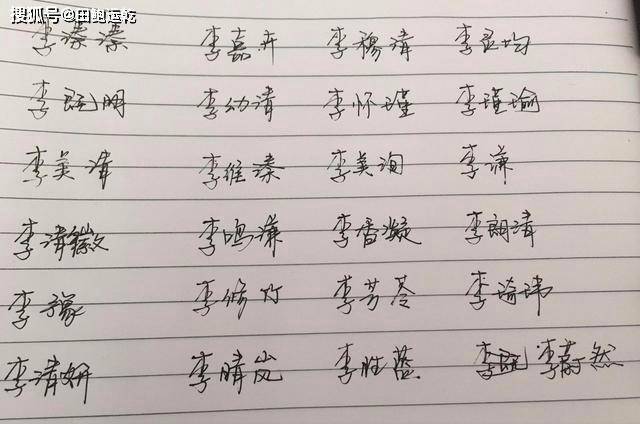 搜狐号@田鲍运乾
李溱溱 李嘉卉 李穆清 李灵均
李 明 李幼清 李怀瑾 李瑾瑜
李美清 李维溱 李美洵 李谦
李清徽 李鸣谦 李香凝 李朗清
李豫 李修竹 李芳苓 李琦玮
李清妍 李晴岚 李胜蓝 李 李蔚然